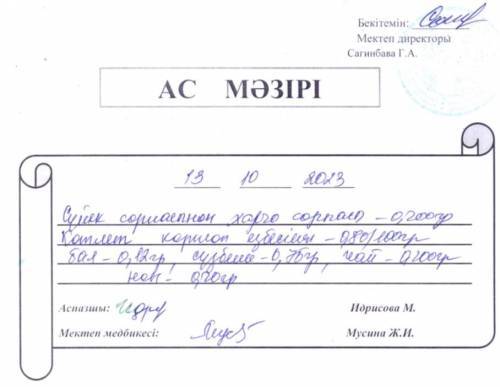 Бекітемін:
Мектеп директоры
Сагинбава Г.А.
АС МӘЗІРІ
13 10 2023
Сүйек сорпаспнан харчо сорпасы - 0,200гр
Котлет картоп езбесімен - 0,80/100гр
бал - 0,12гр, сузбеше - 0,75гр, чай - 0,200гр
нан - 0,40гр
Аспазшы: Идрисова М.
Мектеп медбикесі: Мусина Ж.И.